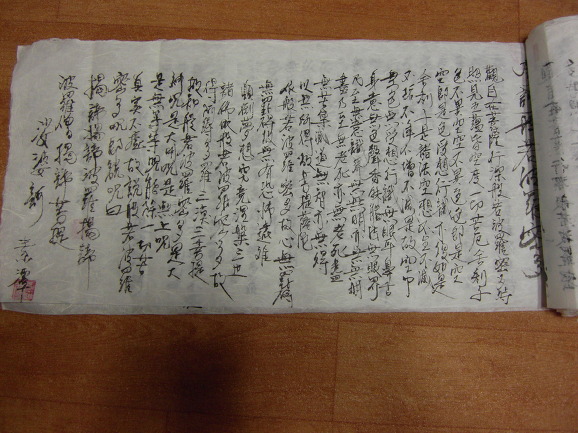 觀自在菩薩行深般若波羅蜜多時
照見五蘊皆空度一切苦厄舍利子
色不異空空不異色色卽是空
空卽是色受想行識亦復如是
舍利子是諸法空想不生不滅
不垢不淨不增不減是故空中
無色無受想行識無眼耳鼻舌
身意無色聲香味觸法無眼界
乃至無意識界無無明亦無無明
盡乃至無老死亦無老死盡
無苦集滅道無智亦無得
以無所得故菩提薩埵
依般若波羅蜜多故心無罣礙
無罣礙故無有恐怖遠離
顚倒夢想究竟涅槃三世
諸佛依般若波羅蜜多故
得阿耨多羅三藐三菩提
故知般若波羅蜜多是大
神呪是大明呪是無上呪
是無等等呪能除一切苦
眞實不虛故說般若波羅
蜜多呪卽說呪曰
揭諦揭諦波羅揭諦
波羅僧揭諦菩提
娑婆訶